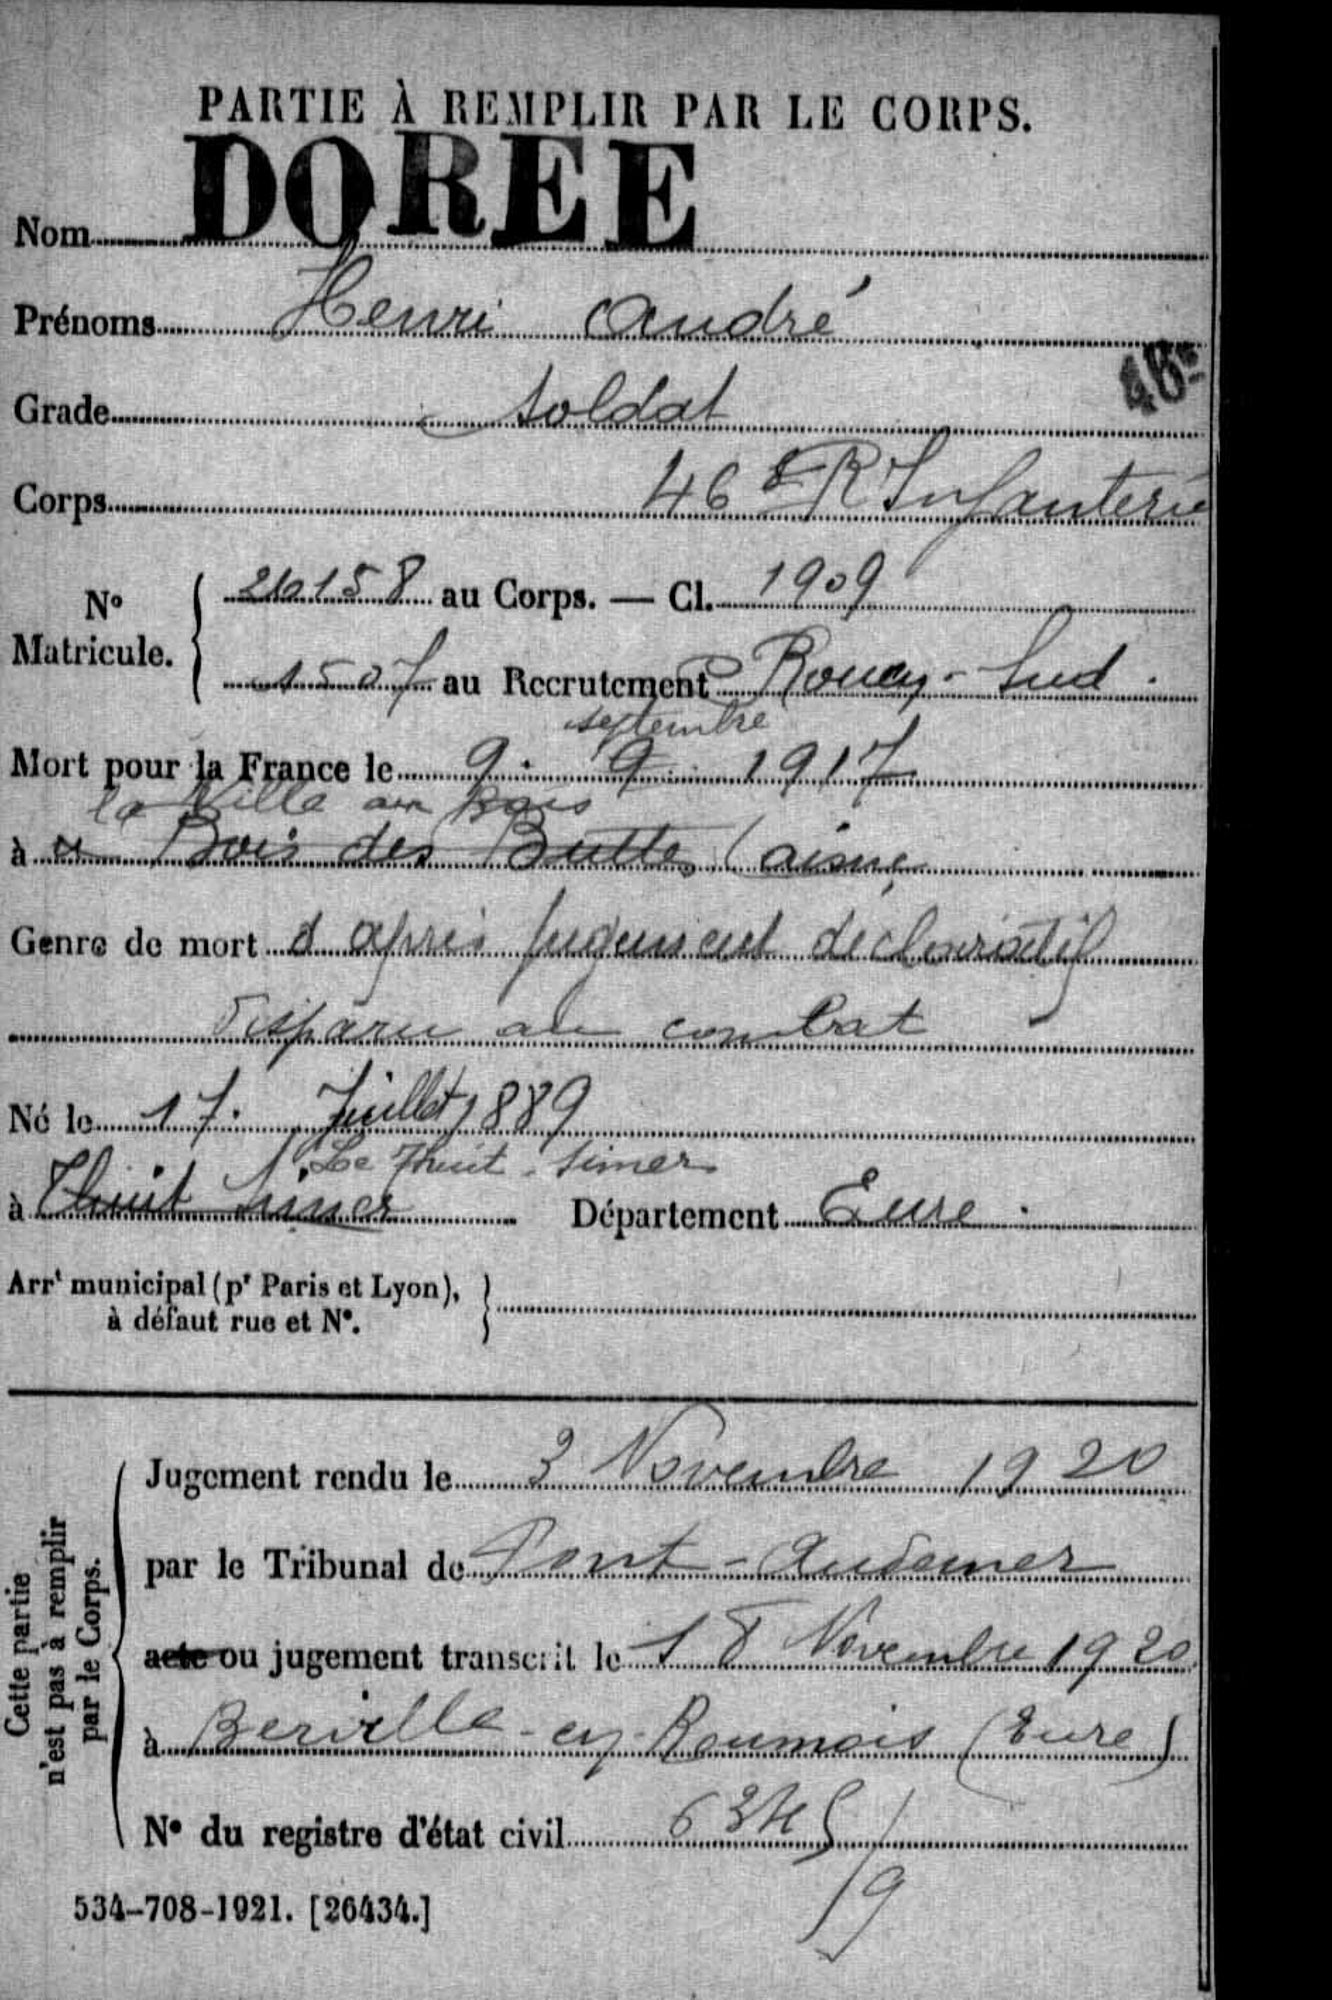 PARTIE À REMPLIR PAR LE CORPS.
Nom DORÉE
Prénoms Henri André
46e
Grade Soldat
Corps 46e R Infanterie
N° Matricule. 26158 au Corps. — Cl. 1909
1507 au Recrutement Rouen-Sud.
septembre
Mort pour la France le 9. 9. 1917
la Ville aux Bois
à Bois des Buttes (aisne
Genre de mort d'après jugement déclaratif
Disparu au combat
Né le 17. Juillet 1889
Le Thuit-Simer
à Thuit Simer Département Eure.
Arrt municipal (pr Paris et Lyon),
à défaut rue et N°.
Cette partie
n'est pas à remplir
par le Corps.
Jugement rendu le 3 Novembre 1920
par le Tribunal de Pont-Audemer
acte ou jugement transcrit le 18 Novembre 1920
à Berville-en-Roumois (Eure)
N° du registre d'état civil
9
534-708-1921. [26434.]